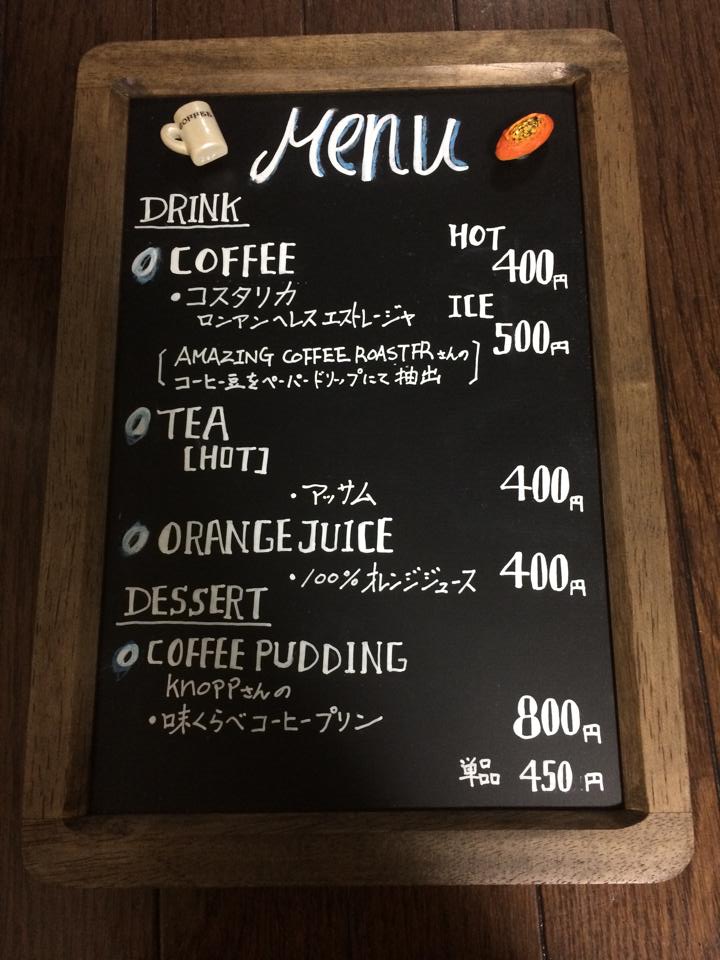 COFFEE
Menu
DRINK
COFFEE
HOT
400円
・コスタリカ
ロンアンヘレス エストレージャ
ICE
500円
[AMAZING COFFEE ROASTERさんの
コーヒー豆をペーパードリップにて抽出]
TEA
[HOT]
・アッサム 400円
ORANGE JUICE
・100%オレンジジュース 400円
DESSERT
COFFEE PUDDING
KNOPPさんの
・味くらべコーヒープリン 800円
単品 450円